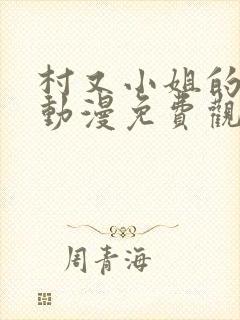 村又小姐的
動漫免費觀
周青海